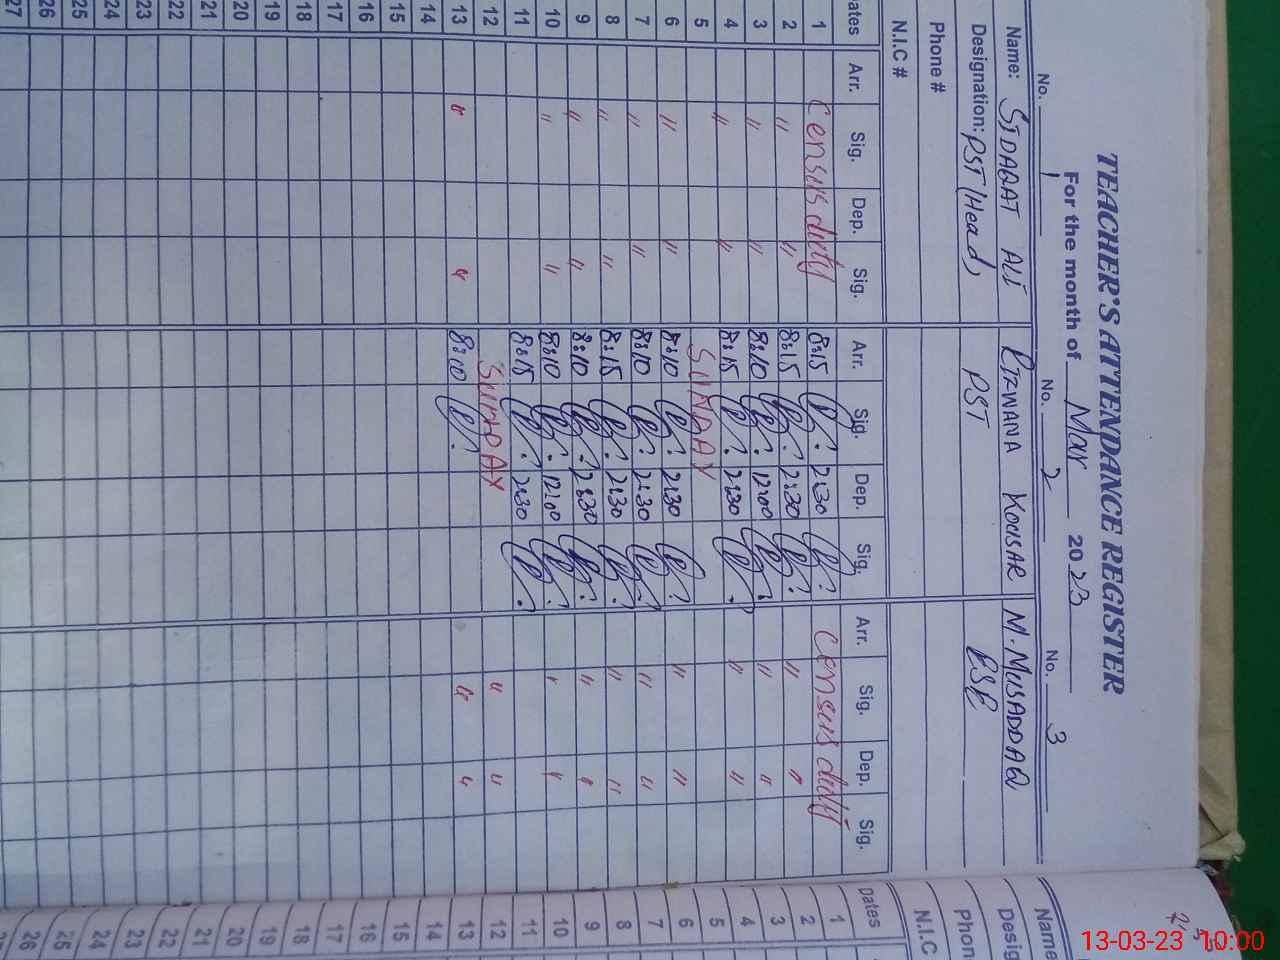 TEACHER'S ATTENDANCE REGISTER
For the month of Mar 2023
No. 1 No. 2 No. 3
Name: SIDAQAT ALI RIZWANA KOUSAR M. MUSADDAQ
Designation: PST (Head) PST ESE
Phone #
N.I.C #
Dates Arr. Sig. Dep. Sig. Arr. Sig. Dep. Sig. Arr. Sig. Dep. Sig.
1 Census duty 8:15 2:30 Census duty
2 " " 8:15 2:30 " "
3 " " 8:10 12:00 " "
4 " " 8:15 2:30 " "
5 SUNDAY
6 " " 8:10 2:30 " "
7 " " 8:10 2:30 " "
8 " " 8:15 2:30 " "
9 " " 8:10 2:30 " "
10 " " 8:10 12:00 " "
11 8:15 2:30
12 SUNDAY " "
13 " " 8:10 " "
14
15
16
17
18
19
20
21
22
23
24
25
26
27
Name
Desig
Phon
N.I.C
Dates
1
2
3
4
5
6
7
8
9
10
11
12
13
14
15
16
17
18
19
20
21
22
23
24
25
26
13-03-23 10:00